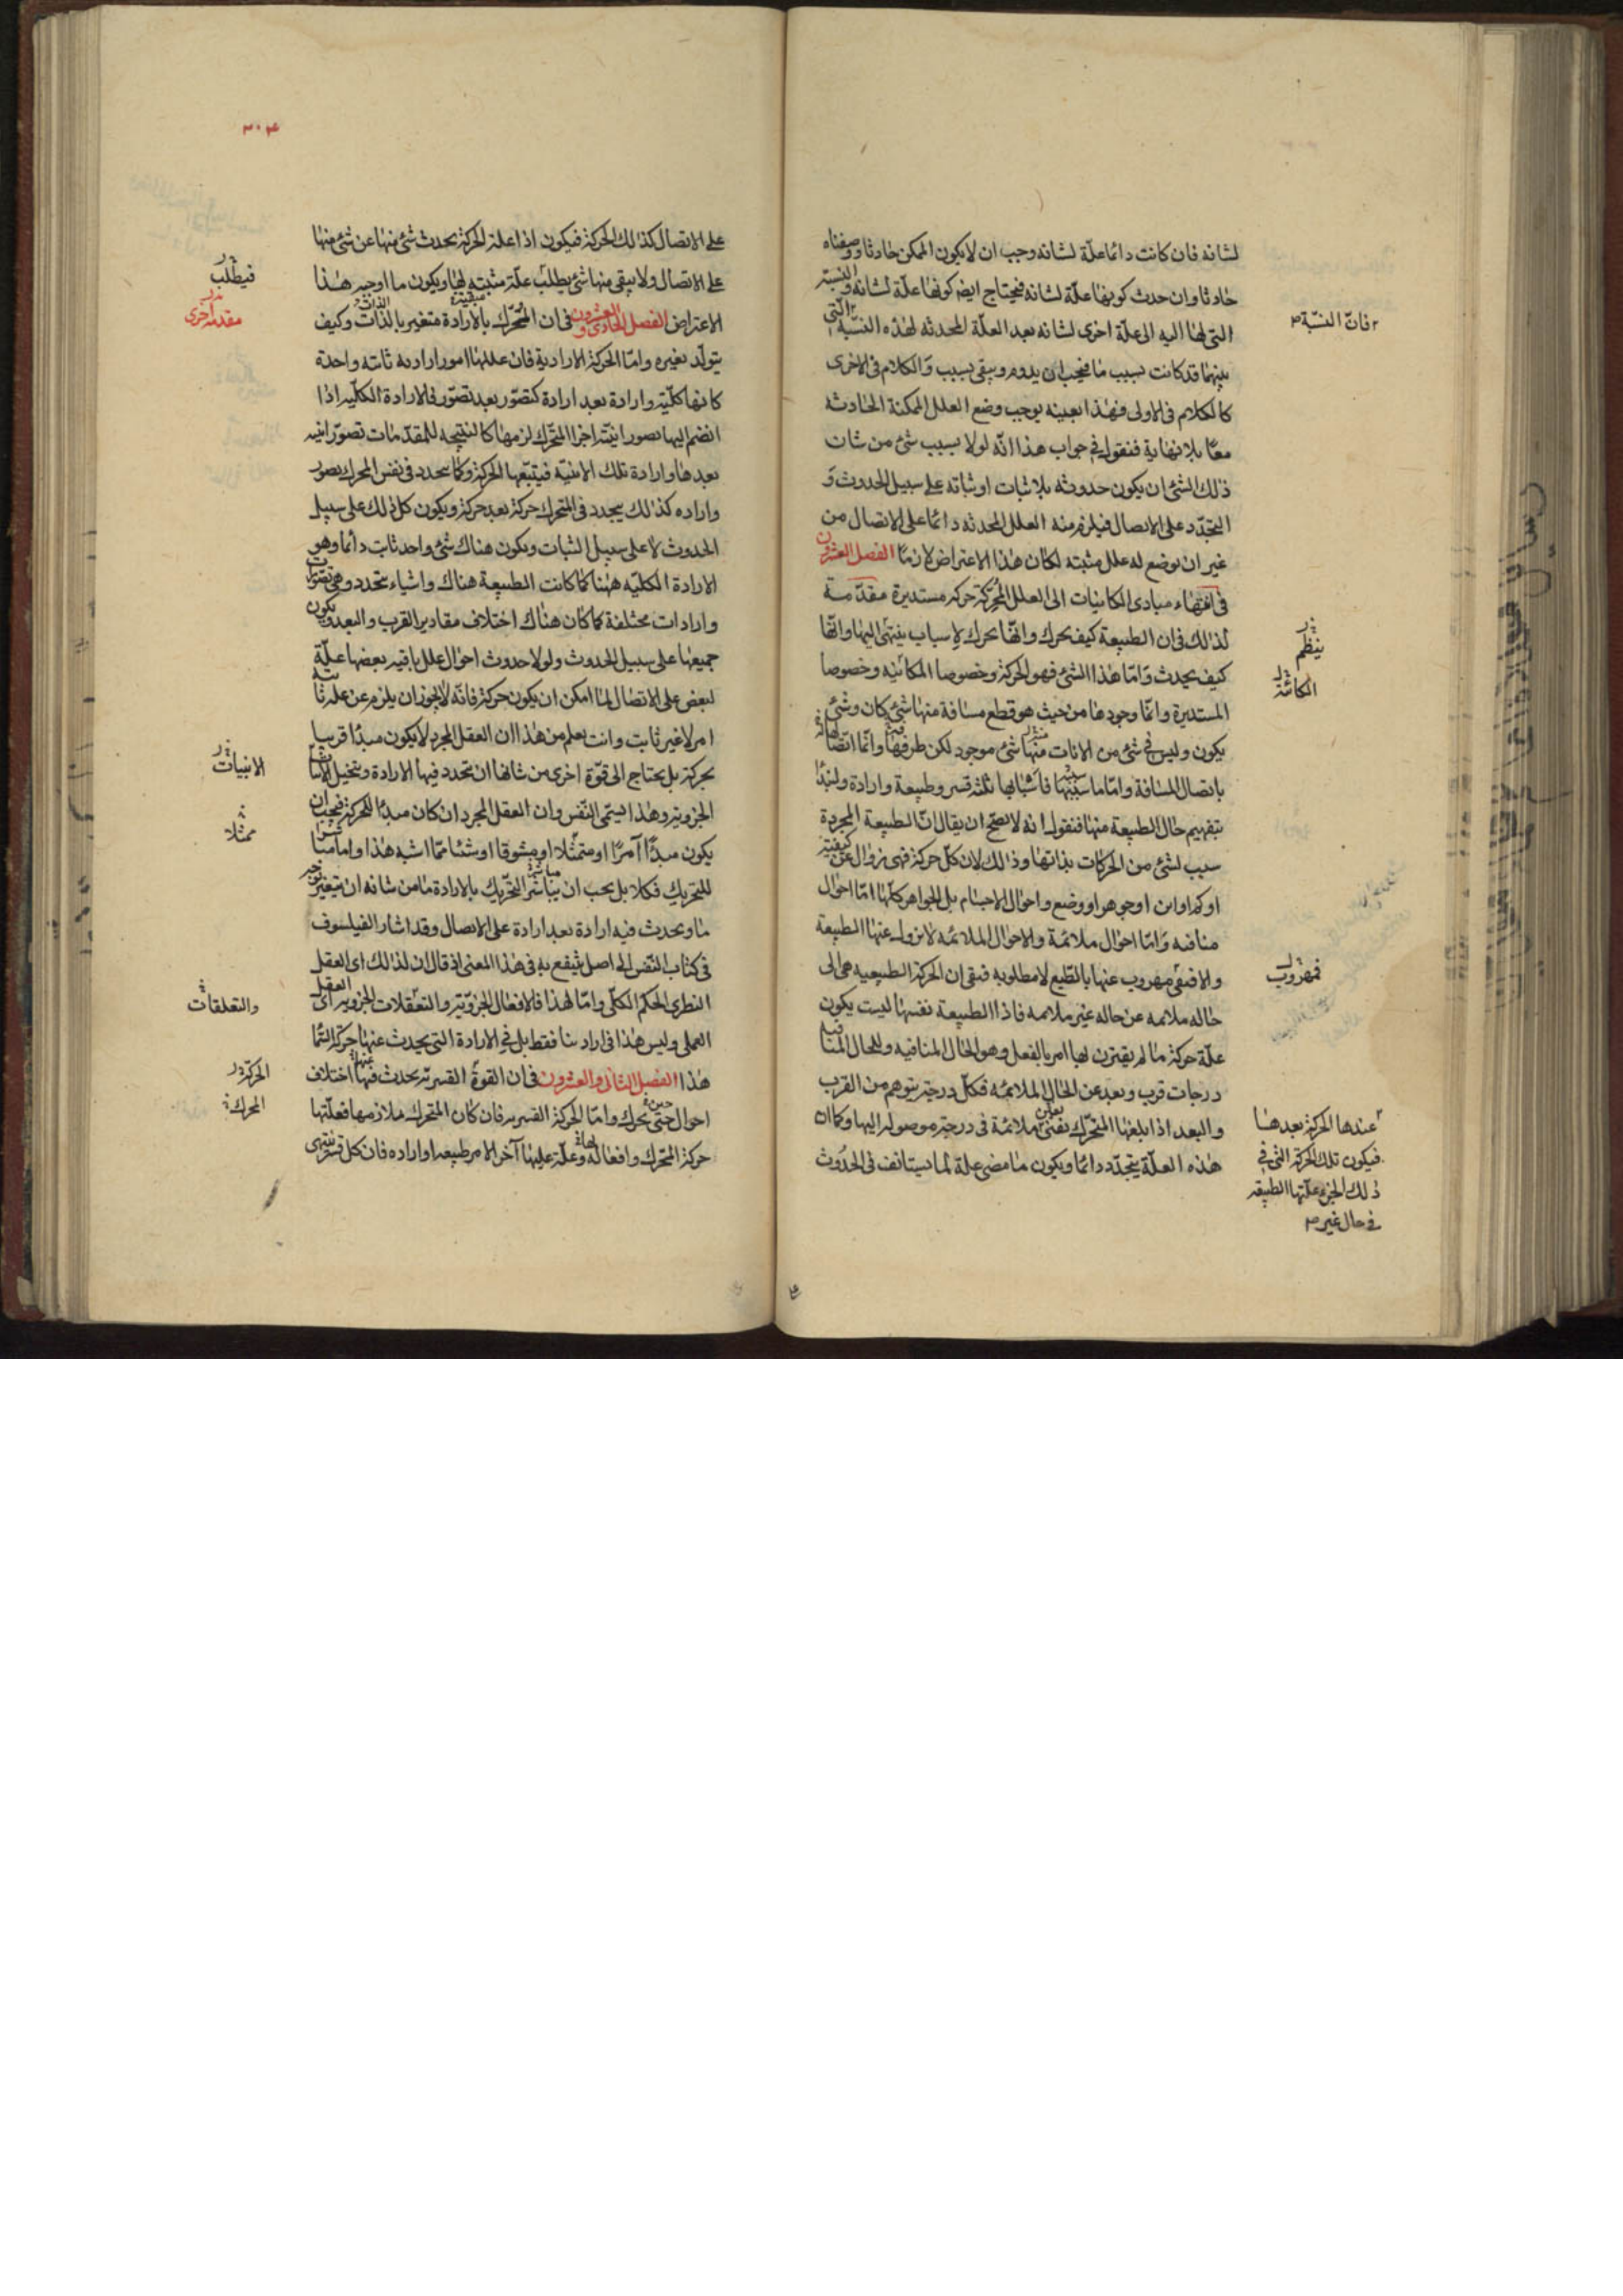 لشانه فان كانت دائما علّة لشانه وجب ان لا يكون الممكن حادثا وو صفناه
حادثا وان حدث كونها علّة لشانه فيحتاج ايضا كونها علّة لشانه و النسبة
التى لها اليه الى علّة اخرى لشانه بعد العلّة المحدثه لهذه النسبة التى
بينهما قد كانت بسبب ما فيجب ان يدوم ويبقى بسبب وَالكلام فى الاخرى
كالكلام فى الاولى فهذا بعينه يوجب وضع العلل الممكنة الحادثه
معًا بلا نهاية فنقول فى جواب هذا انّه لولا بسبب شئ من شان
ذلك الشئ ان يكون حدوثه بلا ثبات او ثباته على سبيل الحدوث وَ
التجدّد على الاتصال فيلزم منه العلل المحدثه دائما على الاتصال من
غير ان يوضع له علل مثبته لكان هذا الاعتراض لازمًا الفصل العشرون
فى انتهاء مبادى الكاينيات الى العلل المحرّكة حركه مستديرة مقدّمة
لذلك فى ان الطبيعة كيف تحرك وانّها تحرك لاسباب ينتهى اليها وانّها
كيف يحدث وَامّا هذا الشئ فهو الحركة وخصوصا المكانيه وخصوصا
المستديرة وانّما وجودها من حيث هو قطع مسافة منها شئ كان وشئ
يكون وليس فى شئ من الانات منها شئ موجود لكن طرفها وانّما اتّصالها
باتصال المسافة وامّا ما سببها فاشباهها ثلثه قسر وطبيعة وارادة ولنبدأ
بتفهيم حال الطبيعة منها فنقول انه لا يصحّ ان يقال انّ الطبيعة المجردة
سبب لشئ من الحركات بذاتها وذلك لان كلّ حركة فهى زوال عن كيفية
او كم او اين او جوهر او وضع واحوال الاجسام بل الجواهر كلّها امّا احوال
منافيه وَامّا احوال ملائمة والاحوال الملائمه لا تزول عنها الطبيعة
والا فتبقى مهروب عنها بالطّبع لا مطلوبه فبقى ان الحركة الطبيعيه هى الى
حاله ملائمه عن حاله غير ملائمه فاذا الطبيعة نفسها ليست يكون
علّة حركة ما لم يقترن بها امر بالفعل وهو الحال المنافيه وللحال المنافيه
درجات قرب وبعد عن الحال الملائمه فكلّ درجة يتوهم من القرب
والبعد اذا بلغها المتحرّك ملائمة فى درجة موصول اليها وكما ان
هذه العلّة يتجدّد دائما ويكون ما مضى علة لما يستانف فى الحدُوث
فانّ النسبّة
ينظم
الكائنة
فمهروب
عندها الحركة بعدها
فيكون تلك الحركة التى فى
ذلك الجزء علّتها الطبيعة
فى حال غير
٣٠٤
على الاتصال كذلك الحركة فيكون اذا علة الحركة يحدث شئ منها عن شئ منها
على الاتصال ولا يبقى منها شئ يطلب علّة مثبته لها ويكون ما اوجبه هذا
الاعتراض الفصل الحادى و العشرون فى ان المحرّك بالارادة متغير بالذات وكيف
يتولّد تغيره وامّا الحركة الارادية فان عللها امور اراديه ثابته واحدة
كانها كلّية وارادة بعد ارادة كتصوّر بعد تصوّر فى الارادة الكلّيه اذا
انضم اليها تصور اينيّة اجزا المتحرّك لزمها كالنتيجه للمقدّمات تصوّر اينيه
بعدها وارادة تلك الاينيّه فيتبعها الحركة وكما يتجدد فى نفس المحرك تصور
واراده كذلك يتجدد فى المتحرك حركة بعد حركة ويكون كل ذلك على سبيل
الحدوث لا على سبيل الثبات ويكون هناك شئ واحد ثابت دائما وهو
الارادة الكليّه ههنا كما كانت الطبيعة هناك واشياء تتجدد وهى تصورات
وارادات مختلفة كما كان هناك اختلاف مقادير القرب والبعد ويكون
جميعها على سبيل الحدوث ولولا حدوث احوال علل باقيه بعضها علّة
لبعض على الاتصال لما امكن ان يكون حركة فانّه لا يجوز ان يلزم عن علة ثابته
امر لا غير ثابت وانت تعلم من هذا ان العقل المجرد لا يكون مبدأ قريبا
لحركة بل يحتاج الى قوّة اخرى من شانها ان تتجدد فيها الارادة وتتخيل الاينيات
الجزويّة وهذا يسمّى النّفس وان العقل المجرد ان كان مبدأ للحركة فيجب ان
يكون مبدأ آمرًا او متمثّلا او مشوقا او شيئا ممّا اشبه هذا واما مباشرا
للتحريك فكلا بل يجب ان يباشر التحريك بالارادة ما من شانه ان يتغير بوجه
ما ويحدث فيه ارادة بعد ارادة على الاتصال وقد اشار الفيلسوف
فى كتاب النّفس الى اصل ينتفع به فى هذا المعنى اذ قال ان لذلك اى العقل
النظرى الحكم الكلّى وامّا لهذا فالافعال الجزويّة والتعقّلات الجزوية اى العقل
العملى وليس هذا فى ارادتنا فقط بل فى الارادة التى يحدث عنها حركة السّما
هذا الفصل الثانى والعشرون فى ان القوة القسريّة يحدث فيها اختلاف
احوال حتى تحرك وامّا الحركة القسريه فان كان المتحرك ملازمها فعلّتها
حركة المتحرك وافعاله وعلّة عليها آخر الامر طبيعه او اراده فان كل قسر ينتهى
فيطلب
مقدمة اخرى
الاينيات
ممثلا
والتعلقات
الحركة
المحرك